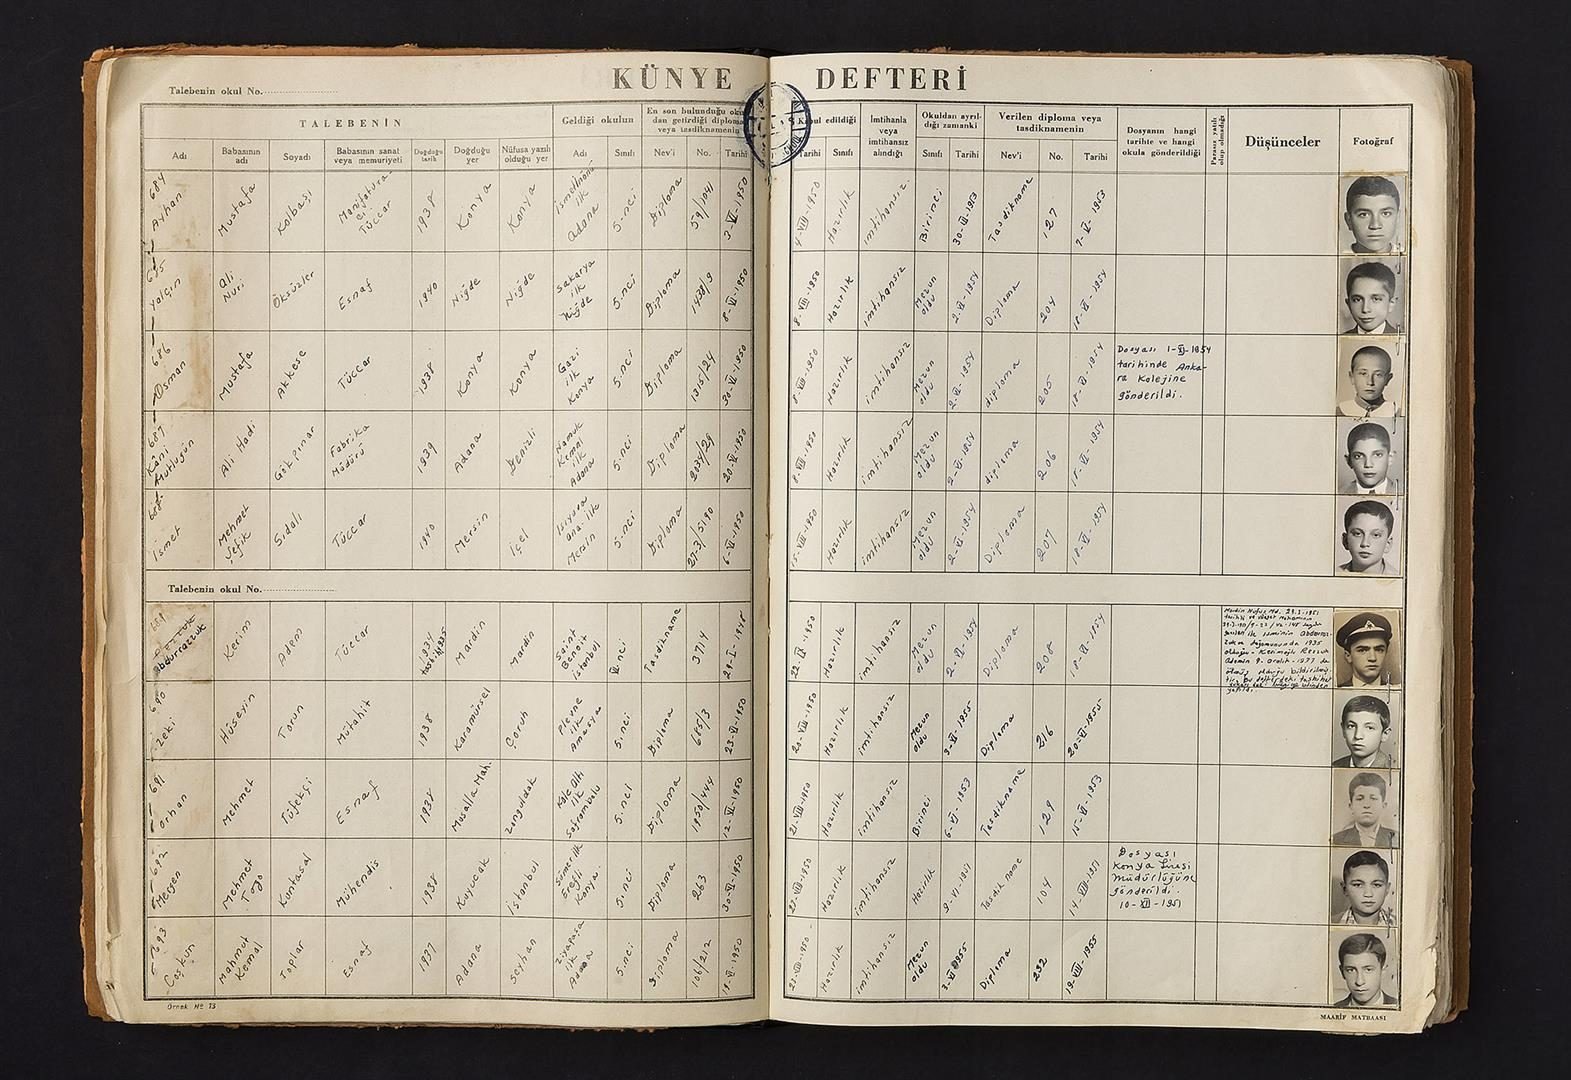 KÜNYE DEFTERİ
Talebenin okul No.
TALEBENİN
Geldiği okulun
En son bulunduğu oku
dan getirdiği diploma
veya tasdiknamenin
Kabul edildiği
İmtihanla
veya
imtihansız
alındığı
Okuldan ayrıl-
dığı zamanki
Verilen diploma veya
tasdiknamenin
Dosyanın hangi
tarihte ve hangi
okula gönderildiği
Parasız yatılı
olup olmadığı
Düşünceler
Fotoğraf
Adı
Babasının
adı
Soyadı
Babasının sanat
veya memuriyeti
Doğduğu
tarih
Doğduğu
yer
Nüfusa yazılı
olduğu yer
Adı
Sınıfı
Nev'i
No.
Tarihi
Tarihi
Sınıfı
Sınıfı
Tarihi
Nev'i
No.
Tarihi
684
Ayhan
Mustafa
Kolbaşı
Manifatura
Tüccar
1938
Konya
Konya
ilk
Adana
5.nci
Diploma
59/1041
3-VI-1950
4-VII-1950
Hazırlık
imtihansız.
Birinci
Tasdikname
127
1953
685
Yalçın
Ali
Nuri
Öksüzler
Esnaf
1940
Niğde
Niğde
Sakarya
ilk
Niğde
5.nci
Diploma
1438/9
8-VI-1950
8-VII-1950
Hazırlık
imtihansız
Mezun
oldu
2-VI-1954
Diploma
204
18-VI-1954
686
Osman
Mustafa
Akkese
Tüccar
1938
Konya
Konya
Gazi
ilk
Konya
5.nci
Diploma
1315/24
30-VI-1950
8-VII-1950
Hazırlık
imtihansız
Mezun
oldu
2-VI-1954
diploma
205
18-VI-1954
Dosyası 1-XI-1954
tarihinde Anka-
ra Kolejine
gönderildi.
687
Kâni
Mutlugün
Ali Hadi
Gökpınar
Fabrika
Müdürü
1939
Adana
Denizli
Namık
Kemal
ilk
Adana
5.nci
Diploma
2034/29
20-VI-1950
8-VII-1950
Hazırlık
imtihansız
Mezun
oldu
2-VI-1954
diploma
206
18-VI-1954
688
İsmet
Mehmet
Şefik
Sıdalı
Tüccar
1940
Mersin
İçel
ilk
Mersin
5.nci
Diploma
27-3/5190
6-VI-1950
15-VII-1950
Hazırlık
imtihansız
Mezun
oldu
2-VI-1954
Diploma
207
18-VI-1954
Talebenin okul No.
689
Abdurrazzuk
Kerim
Adem
Tüccar
1934
tashih 1935
Mardin
Mardin
Saint
Benoit
İstanbul
VI.nci
Tasdikname
3714
22-IX
Hazırlık
imtihansız
Mezun
oldu
2-VI-1954
Diploma
208
18-VI-1954
690
Zeki
Hüseyin
Torun
Mütahit
1938
Karamürsel
Çoruh
Plevne
ilk
Amasya
5.nci
Diploma
685/3
23-VI-1950
20-VII-1950
Hazırlık
imtihansız
Mezun
oldu
3-VI-1955
Diploma
216
20-VI-1955
691
Orhan
Mehmet
Tüfekçi
Esnaf
1938
Musalla Mah.
Zonguldak
Kale Altı
ilk
Safranbolu
5.nci
Diploma
1950/444
12-VI-1950
21-VII-1950
Hazırlık
imtihansız
Birinci
6-VI-1953
Tasdikname
129
15-VI-1953
692
Mergen
Mehmet
Togo
Kuntasal
Mühendis
1938
Kuyucak
İstanbul
Sümer ilk
Ereğli
Konya.
5.nci
Diploma
263
30-VI-1950
Hazırlık
imtihansız
Hazırlık
9-VI-1951
Tasdikname
104
14-VIII-1951
Dosyası
Konya Lisesi
Müdürlüğüne
gönderildi.
10-XII-1951
693
Coşkun
Mahmut
Kemal
Toplar
Esnaf
1937
Adana
Seyhan
Ziyapaşa
ilk
Adana
5.nci
Diploma
106/212
Hazırlık
imtihansız
Mezun
oldu
3-VI-1955
Diploma
232
19-VIII-1955
Örnek No 13
MAARİF MATBAASI